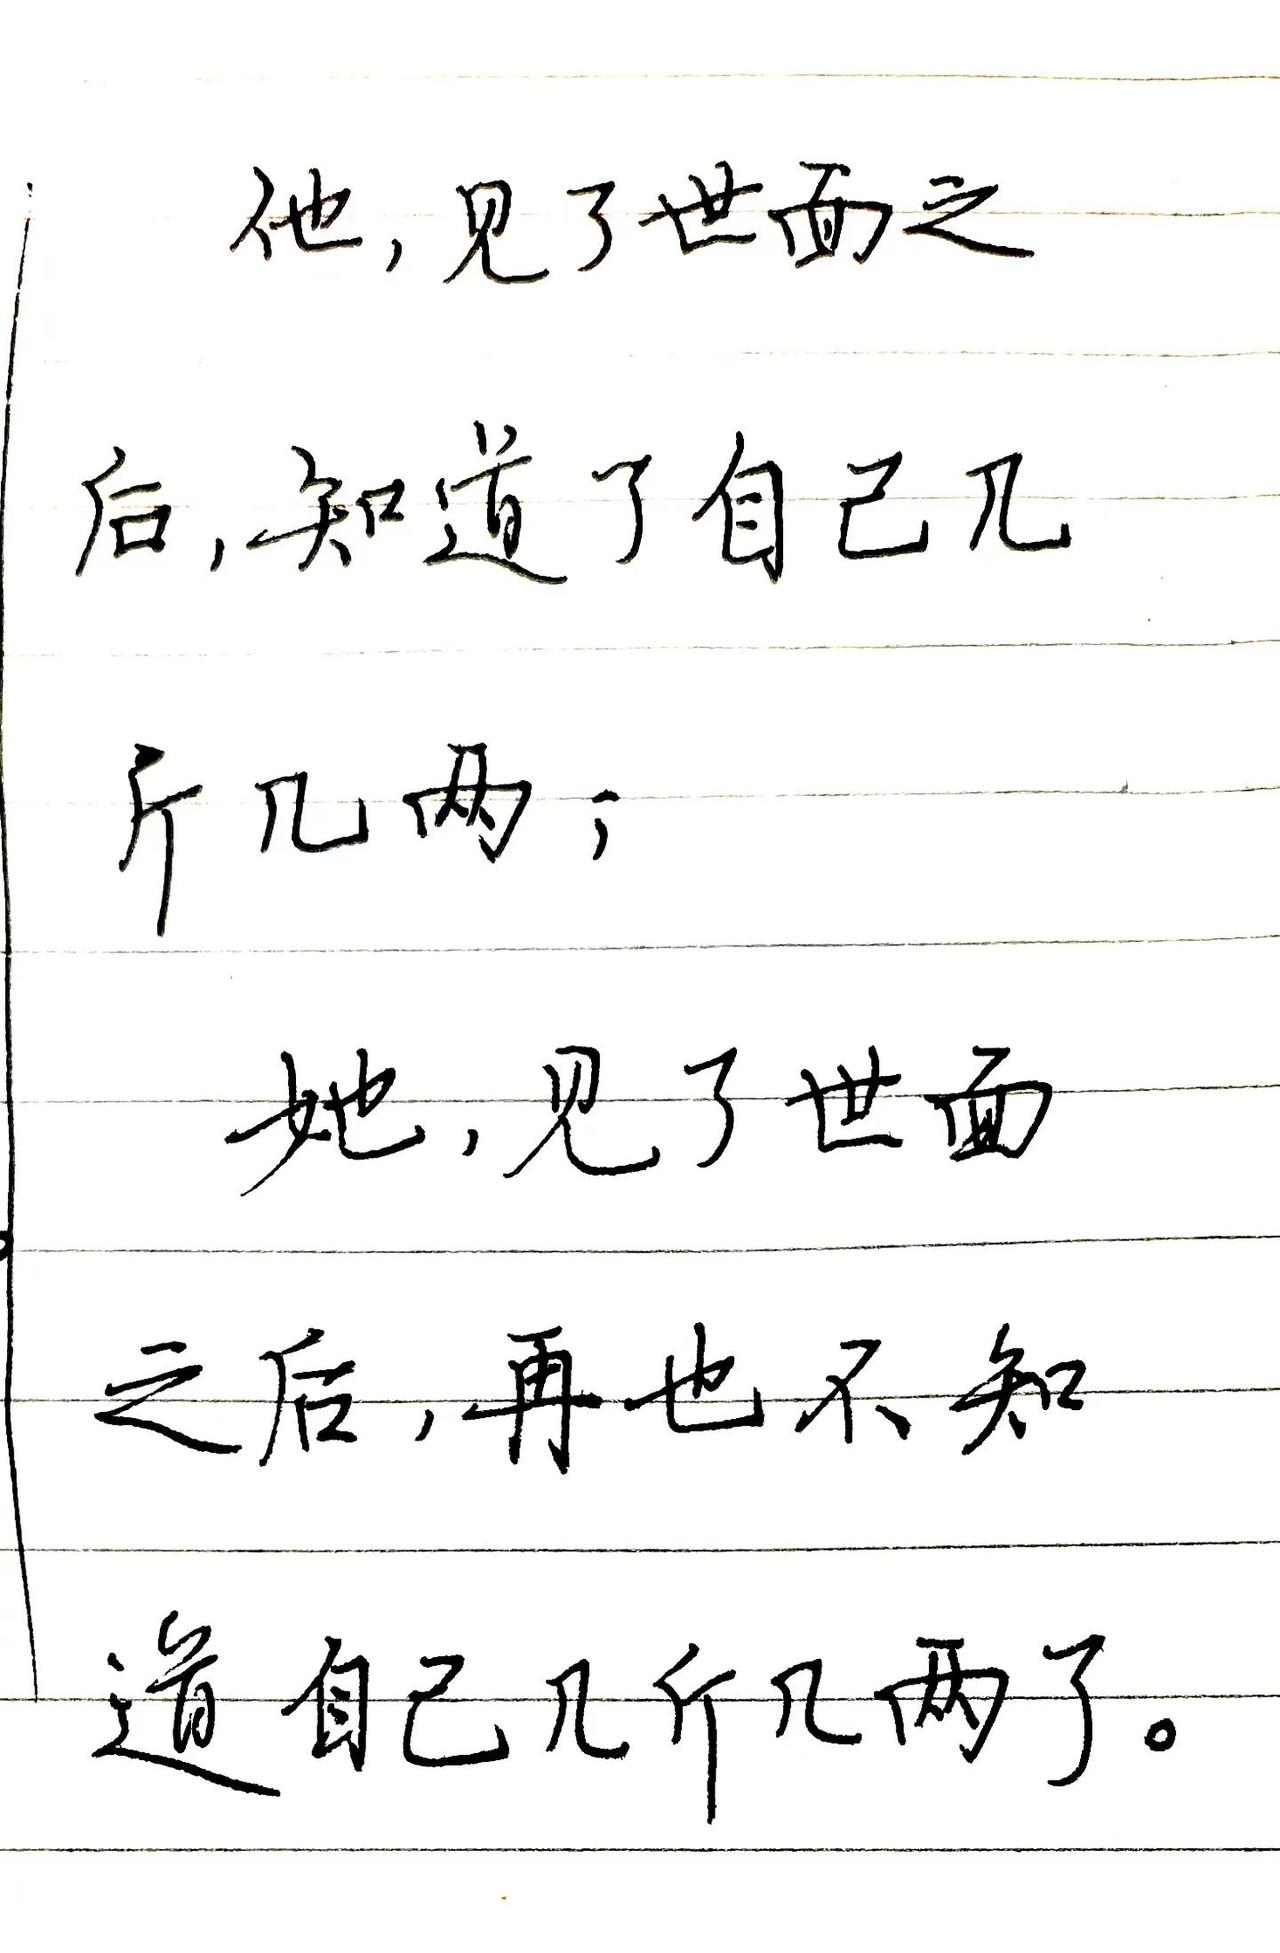 他,见了世面之
后,知道了自己几
斤几两;
她,见了世面
之后,再也不知
道自己几斤几两了。